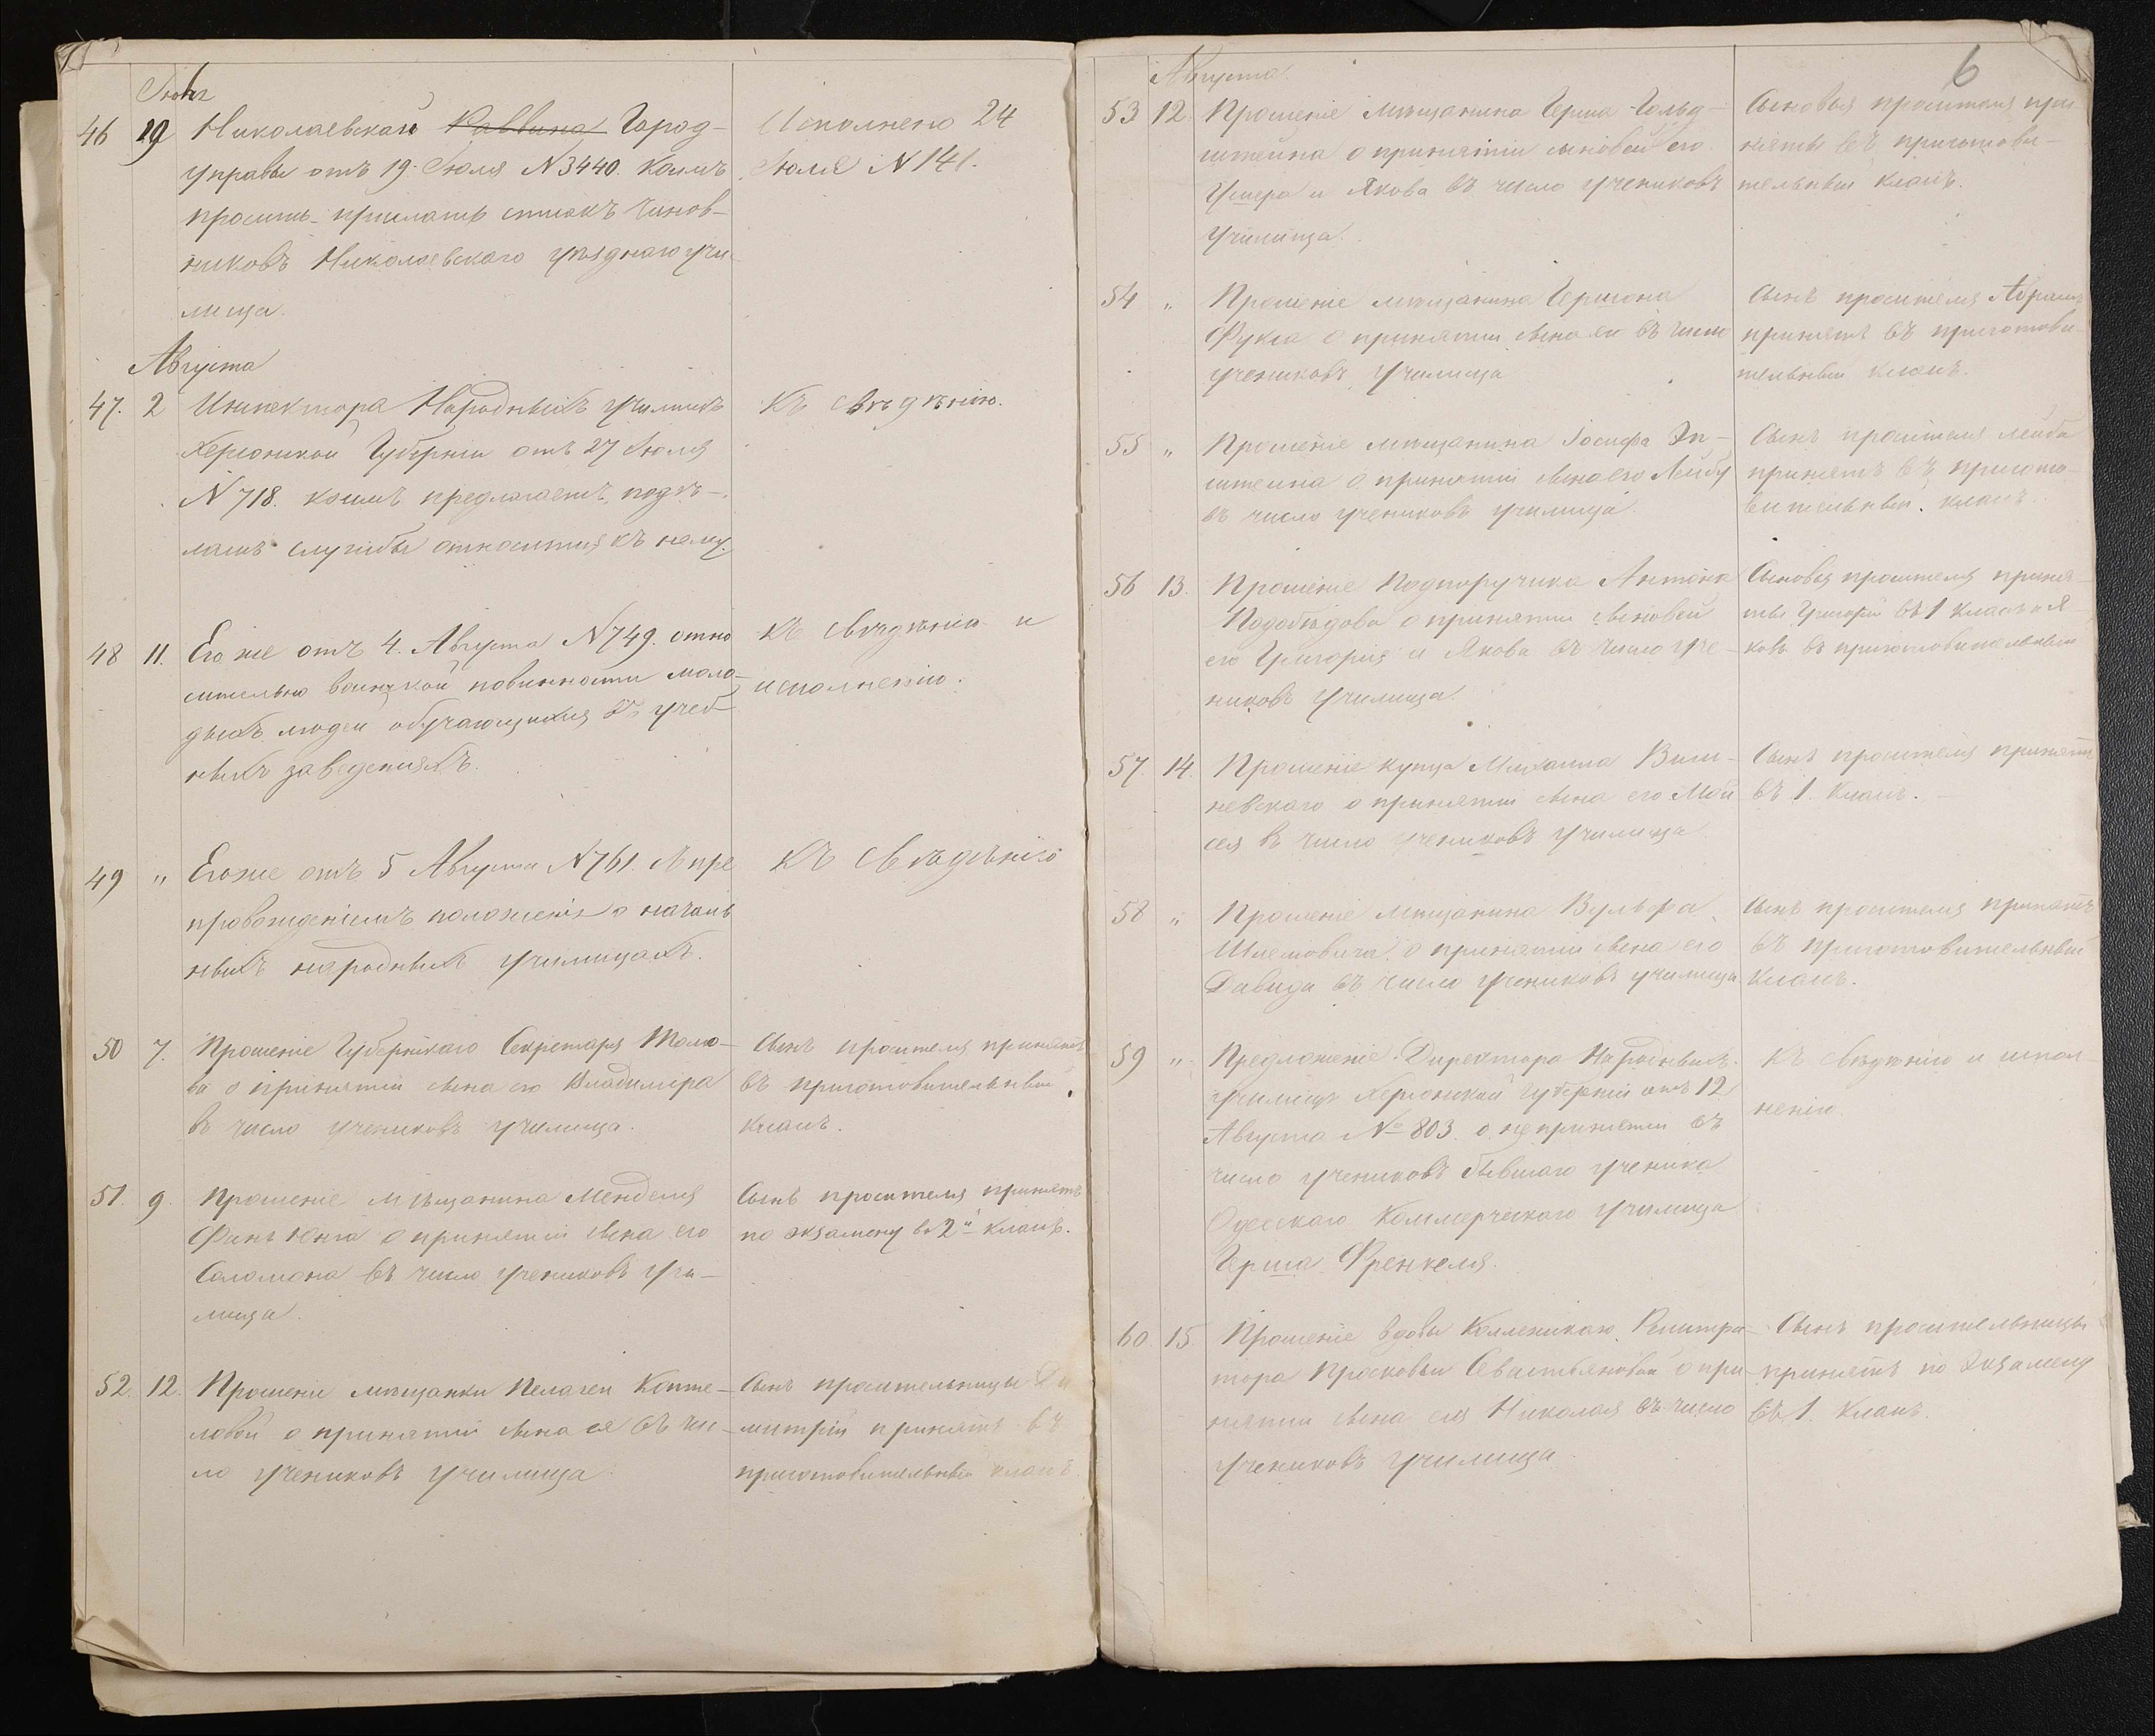 Июль
46 19 Николаевской Раввина Город-
управы отъ 19 Іюля N 3440. коимъ
просить прислать списокъ чинов-
никовъ Николаевскаго уѣзднаго учи-
лища.
Исполнено 24
Іюля N 141.
Августа
47. 2 Инспектора Народныхъ училищъ
Херсонской Губерніи отъ 27 Іюля
N 718. коимъ предлагаетъ по
лашь службы относится къ нему.
Къ свѣдѣнію.
48 11. Его же отъ 4. Августа N 749. отно
сительно воинской повинности моло-
дыхъ людей обучающихся въ учеб
ныхъ заведеніяхъ.
Къ свѣдѣнію и
исполненію.
49 " Его же отъ 5 Августа N 761. съ пре
провожденіемъ положенія о началь
ныхъ народныхъ училищахъ.
Къ свѣдѣнію
50 7. Прошеніе Губернскаго Секретаря
ва о принятіи сына его Владиміра
въ число учениковъ училища.
Сынъ просителя принятъ
въ приготовительный
классъ.
51. 9. Прошеніе мѣщанина Менделя
о принятіи сына его
Соломона въ число учениковъ учи-
лища.
Сынъ просителя принятъ
по экзамену во 2й классъ.
52. 12. Прошеніе мѣщанки Пелагеи Копте-
ловой о принятіи сына ея въ чи-
ло учениковъ училища
Сынъ просительницы Ди
митрій принятъ въ
приготовительный классъ
6
Августа
53 12. Прошеніе мѣщанина Герша Гольд-
штейна о принятіи сыновей его
Ушера и Якова въ число учениковъ
училища.
Сыновья просителя при-
няты въ приготови-
тельный классъ.
54 " Прошеніе мѣщанина Гершона
Фукса о принятіи сына его въ число
учениковъ училища
Сынъ просителя Абрамъ
принятъ въ приготови-
тельный классъ.
55 " Прошеніе мѣщанина Іосифа Эп-
штейна о принятіи сына его Лейбу
въ число учениковъ училища
Сынъ просителя Лейба
принятъ въ пригото-
вительный классъ.
56 13. Прошеніе Подпоручика Антона
Подобѣдова о принятіи сыновей
его Григорія и Якова въ число уче-
никовъ училища.
Сыновья просителя приня-
ты Григорій въ 1 классъ и Я-
ковъ въ приготовительный
57 14. Прошеніе купца Михаила Виш-
невскаго о принятіи сына его Мои
сея въ число учениковъ училища
Сынъ просителя принятъ
въ 1. классъ.
58 " Прошеніе мѣщанина Вульфа
Шлемовича о принятіи сына его
Давида въ число учениковъ училища
Сынъ просителя принятъ
въ приготовительный
классъ.
59 " Предложеніе Директора Народныхъ
училищъ Херсонской Губерніи отъ 12
Августа № 803. о непринятіи въ
число учениковъ бывшаго ученика
Одесскаго Коммерческаго училища
Герша Френкеля.
Къ свѣдѣнію и испол-
ненію
60. 15. Прошеніе вдовы Коллежскаго Регистра-
тора Просковьи Севастьяновой о при
нятіи сына ея Николая въ число
учениковъ училища
Сынъ просительницы
принятъ по экзамену
въ 1. классъ.